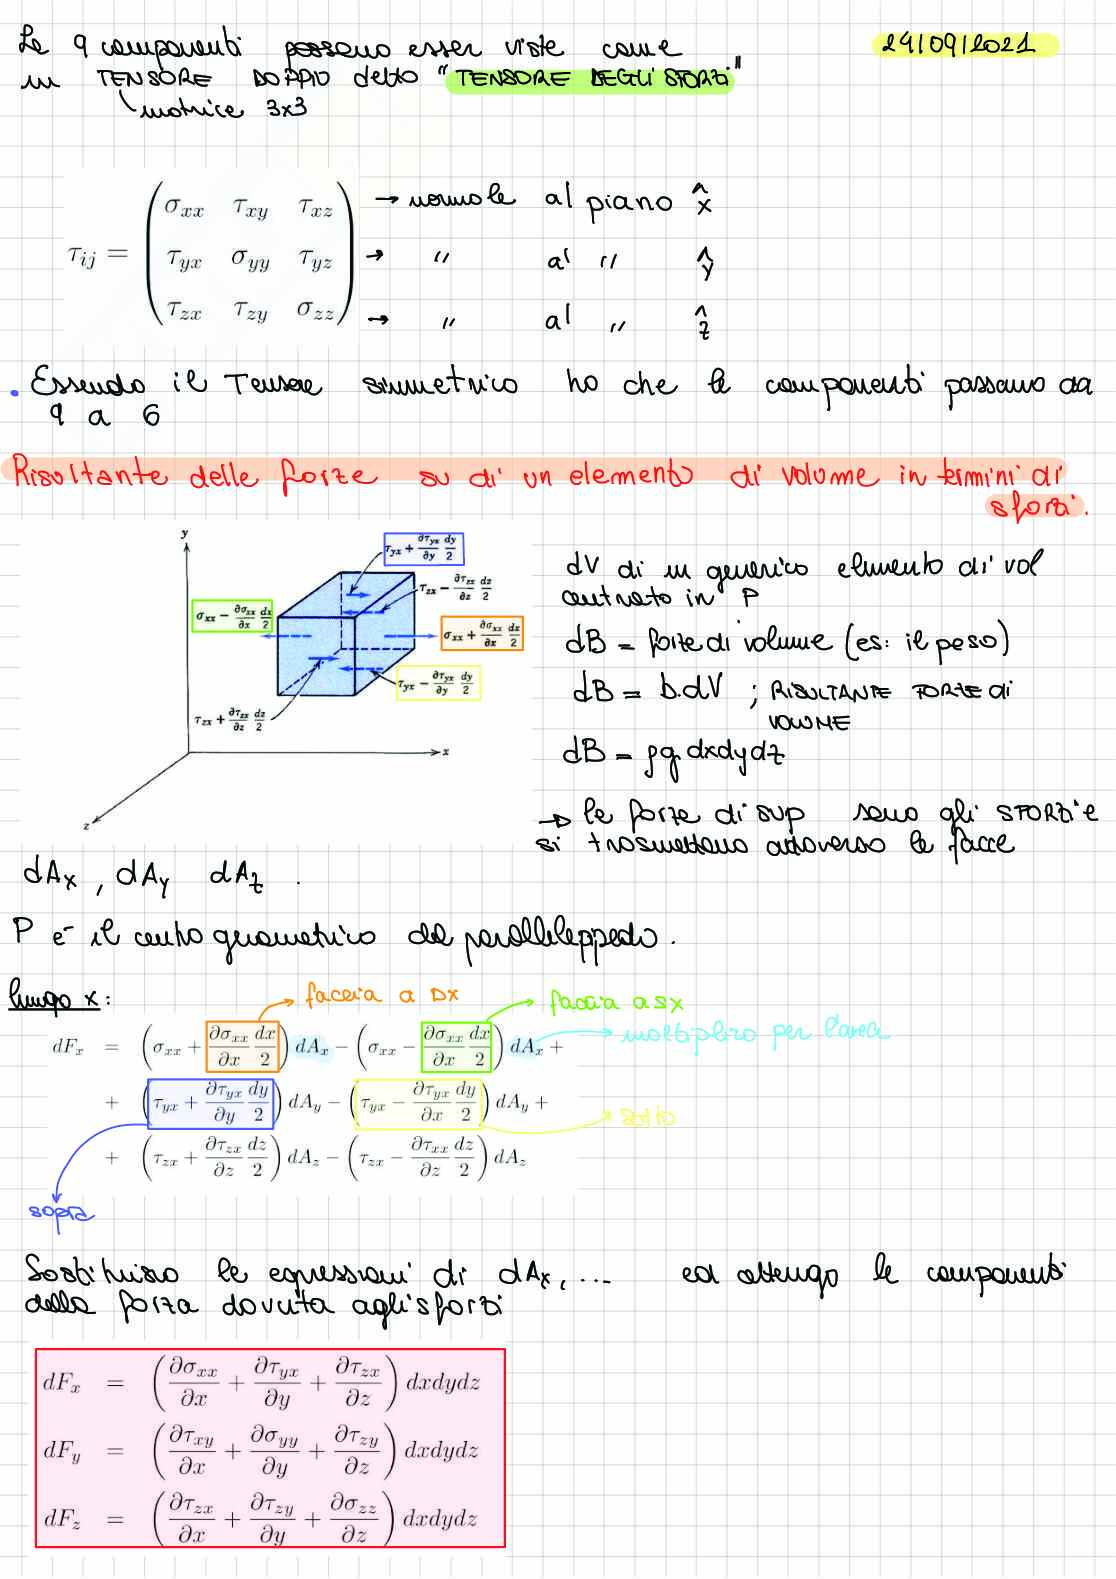 Le 9 componenti possono esser viste come
24/09/2021
un TENSORE DOPPIO detto "TENSORE DEGLI SFORZI"
matrice 3x3
τ_ij = ( σ_xx τ_xy τ_xz → normale al piano x̂
τ_yx σ_yy τ_yz → " al " ŷ
τ_zx τ_zy σ_zz ) → " al " ẑ
. Essendo il Tensore simmetrico ho che le componenti passano da
9 a 6
Risultante delle forze su di un elemento di volume in termini di
sforzi.
y
τ_yx + ∂τ_yx/∂y dy/2
τ_zx − ∂τ_zx/∂z dz/2
σ_xx − ∂σ_xx/∂x dx/2
σ_xx + ∂σ_xx/∂x dx/2
τ_yx − ∂τ_yx/∂y dy/2
τ_zx + ∂τ_zx/∂z dz/2
x
z
dV di un generico elemento di vol
centrato in P
dB = forze di volume (es: il peso)
dB = b.dV ; RISULTANTE FORZE di
VOLUME
dB = ρg dxdydz
→ le forze di sup sono gli SFORZI e
si trasmettono attraverso le facce
dA_x , dA_y dA_z .
P è il centro geometrico del parallelepipedo.
lungo x:
faccia a DX
faccia a SX
dF_x = (σ_xx + ∂σ_xx/∂x dx/2) dA_x − (σ_xx − ∂σ_xx/∂x dx/2) dA_x +
moltiplico per l'area
+ (τ_yx + ∂τ_yx/∂y dy/2) dA_y − (τ_yx − ∂τ_yx/∂x dy/2) dA_y +
sotto
+ (τ_zx + ∂τ_zx/∂z dz/2) dA_z − (τ_zx − ∂τ_xx/∂z dz/2) dA_z
sopra
Sostituisco le espressioni di dA_x, ... ed ottengo le componenti
della forza dovuta agli sforzi
dF_x = (∂σ_xx/∂x + ∂τ_yx/∂y + ∂τ_zx/∂z) dxdydz
dF_y = (∂τ_xy/∂x + ∂σ_yy/∂y + ∂τ_zy/∂z) dxdydz
dF_z = (∂τ_zx/∂x + ∂τ_zy/∂y + ∂σ_zz/∂z) dxdydz